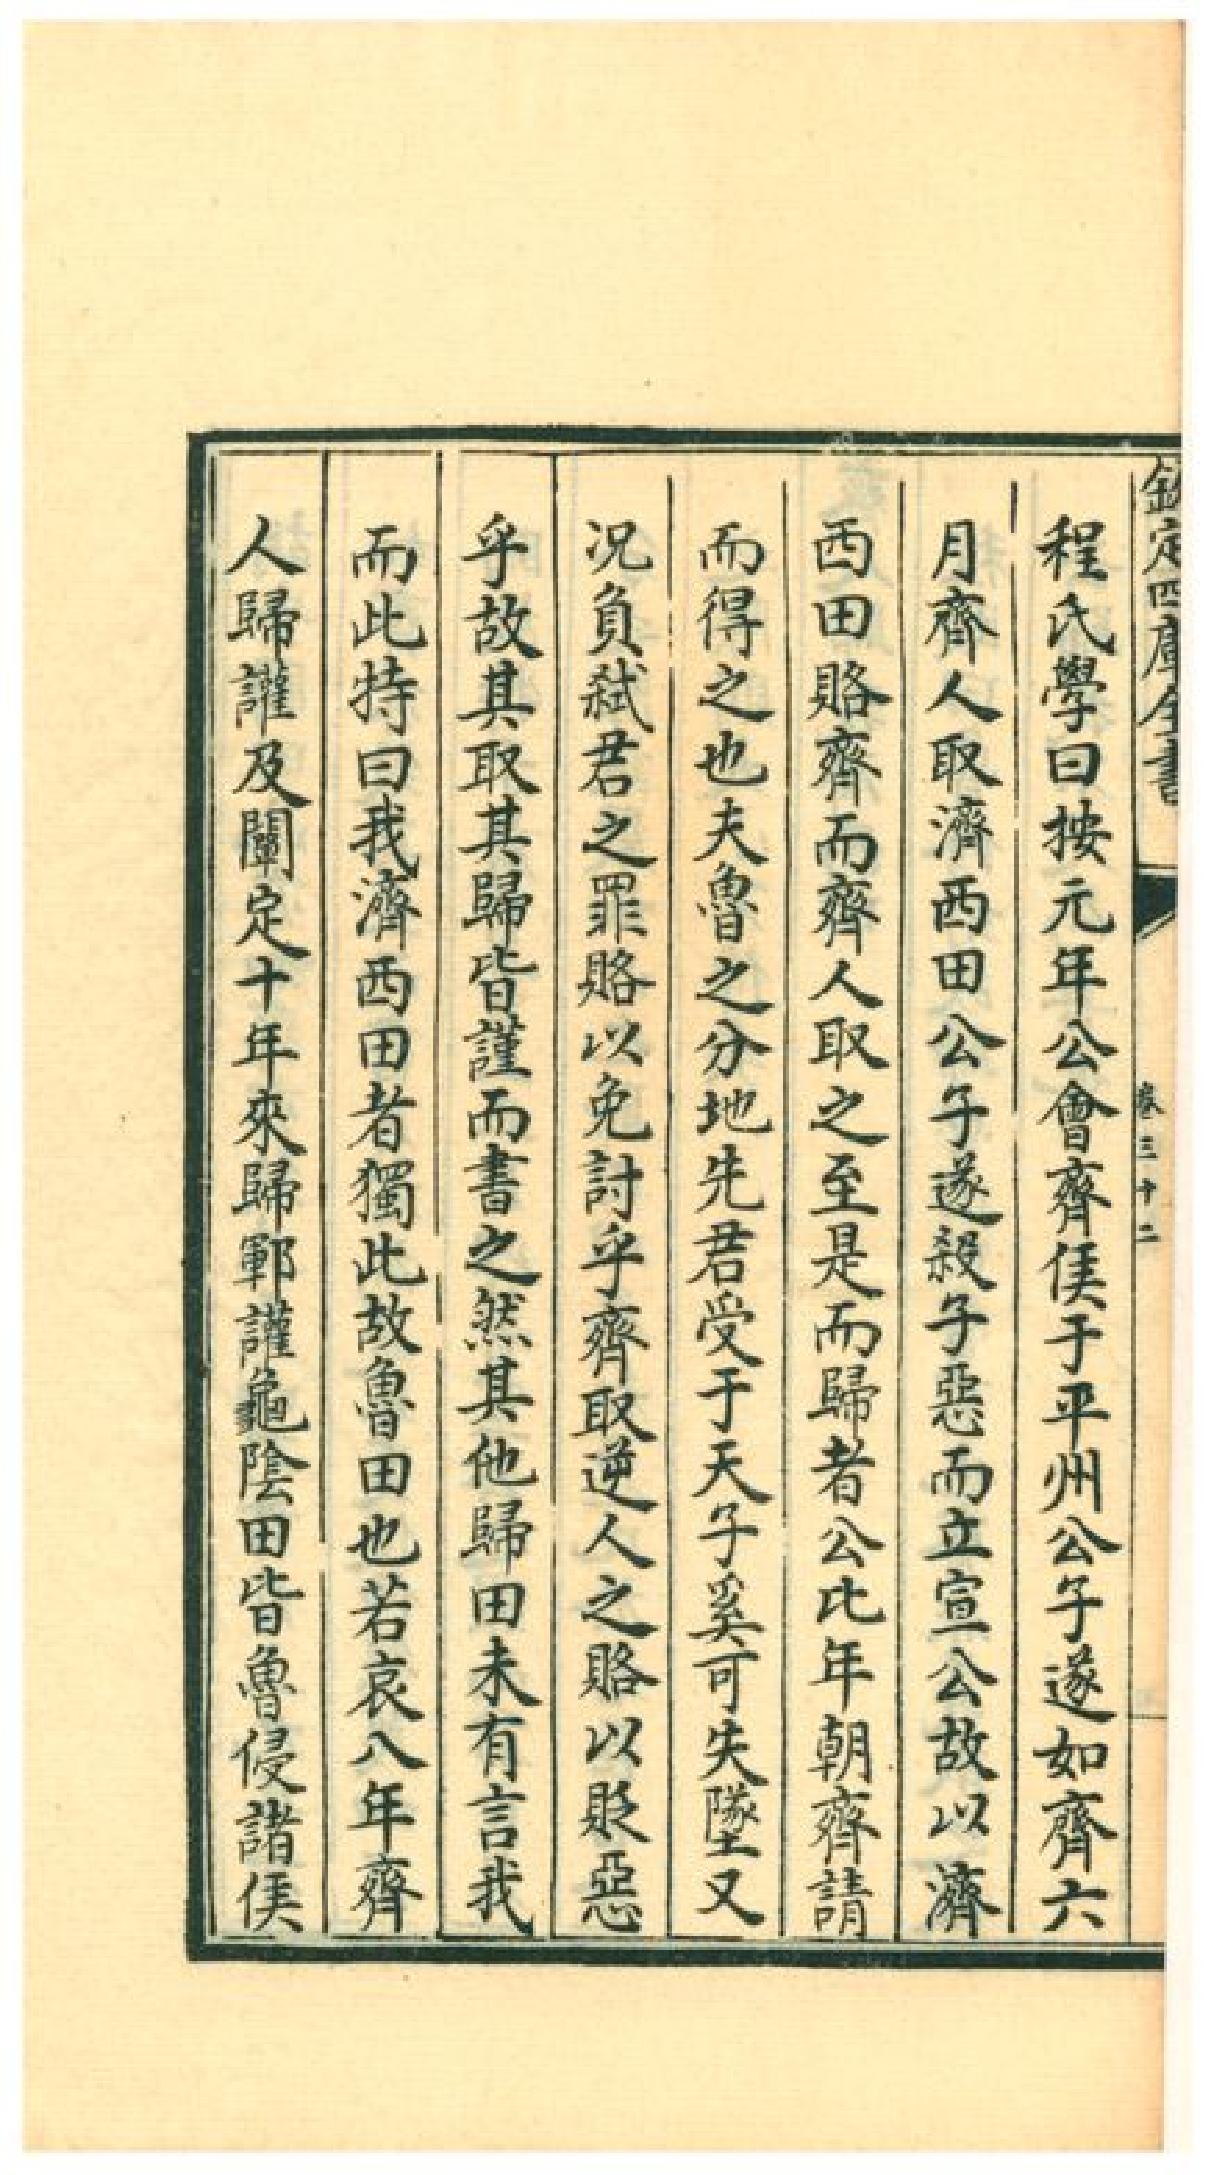 欽定四庫全書
卷三十二
程氏學曰按元年公會齊侯于平州公子遂如齊六
月齊人取濟西田公子遂殺子惡而立宣公故以濟
西田賂齊而齊人取之至是而歸者公比年朝齊請
而得之也夫魯之分地先君受于天子奚可失墜又
况負弑君之罪賂以免討乎齊取逆人之賂以貶惡
乎故其取其歸皆謹而書之然其他歸田未有言我
而此特曰我濟西田者獨此故魯田也若哀八年齊
人歸讙及闡定十年來歸鄆讙龜陰田皆魯侵諸侯